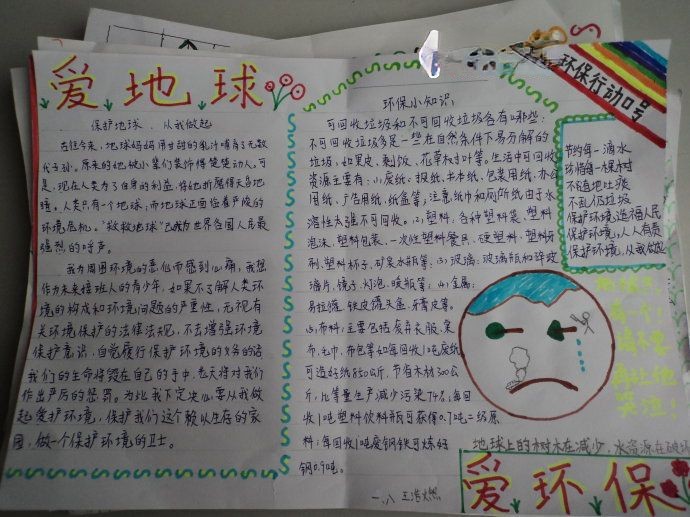 爱地球
保护地球、从我做起
在很久前、地球妈妈用甘甜的乳汁哺育了无数
代子孙。原来的她被小辈们装饰得楚楚动人。可
是，现在人类为了自身的利益，将她折磨得天昏地
暗。人类只有一个地球；而地球正面临着严峻的
环境危机。"救救地球"已成为世界各国人民最
强烈的呼声。
我为周围环境的恶化而感到心痛，我想
作为未来接班人的青少年，如果不了解人类环
境的构成和环境问题的严重性，无视有
关环境保护的法律法规，不去增强环境
保护意识，自觉履行保护环境的义务的话
我们的生命将毁在自己的手中，老天将对我们
作出严厉的惩罚。为此我下定决心要从我做
起爱护环境，保护我们这个赖以生存的家
园，做一个保护环境的卫士。
环保小知识
可回收垃圾和不可回收垃圾各有哪些：
不可回收垃圾多是一些在自然条件下易分解的
垃圾，如果皮、剩饭、花草树叶等。生活中可回收
资源主要有：（1）废纸：报纸、书本纸、包装用纸、办公
用纸、广告用纸、纸盒等；注意纸巾和厕所纸由于水
溶性太强不可回收。（2），塑料，各种塑料袋、塑料
泡沫、塑料包装、一次性塑料餐具、硬塑料、塑料牙
刷、塑料杯子、矿泉水瓶等：（3）玻璃：玻璃瓶和碎玻
璃片、镜子、灯泡、暖瓶等；（4）金属；
易拉罐、铁皮罐头盒、牙膏皮等。
（5）布料；主要包括废弃衣服、桌
布、毛巾、布包等如每回收1吨废纸
可造好纸850公斤，节省木材300公
斤，比等量生产减少污染74%；每回
收1吨塑料饮料瓶可获得0.7吨二级原
料；每回收1吨废钢铁可炼好
钢0.9吨。
一.八 王浩燃
环保行动口号
节约每一滴水
珍惜每一棵树
不随地吐痰
不乱仍垃圾
保护环境，造福人民
保护环境，人人有责
保护环境，从我做起
有一个！
请不要
再让他
哭泣！
地球上的树木在减少，水资源在破坏
爱环保